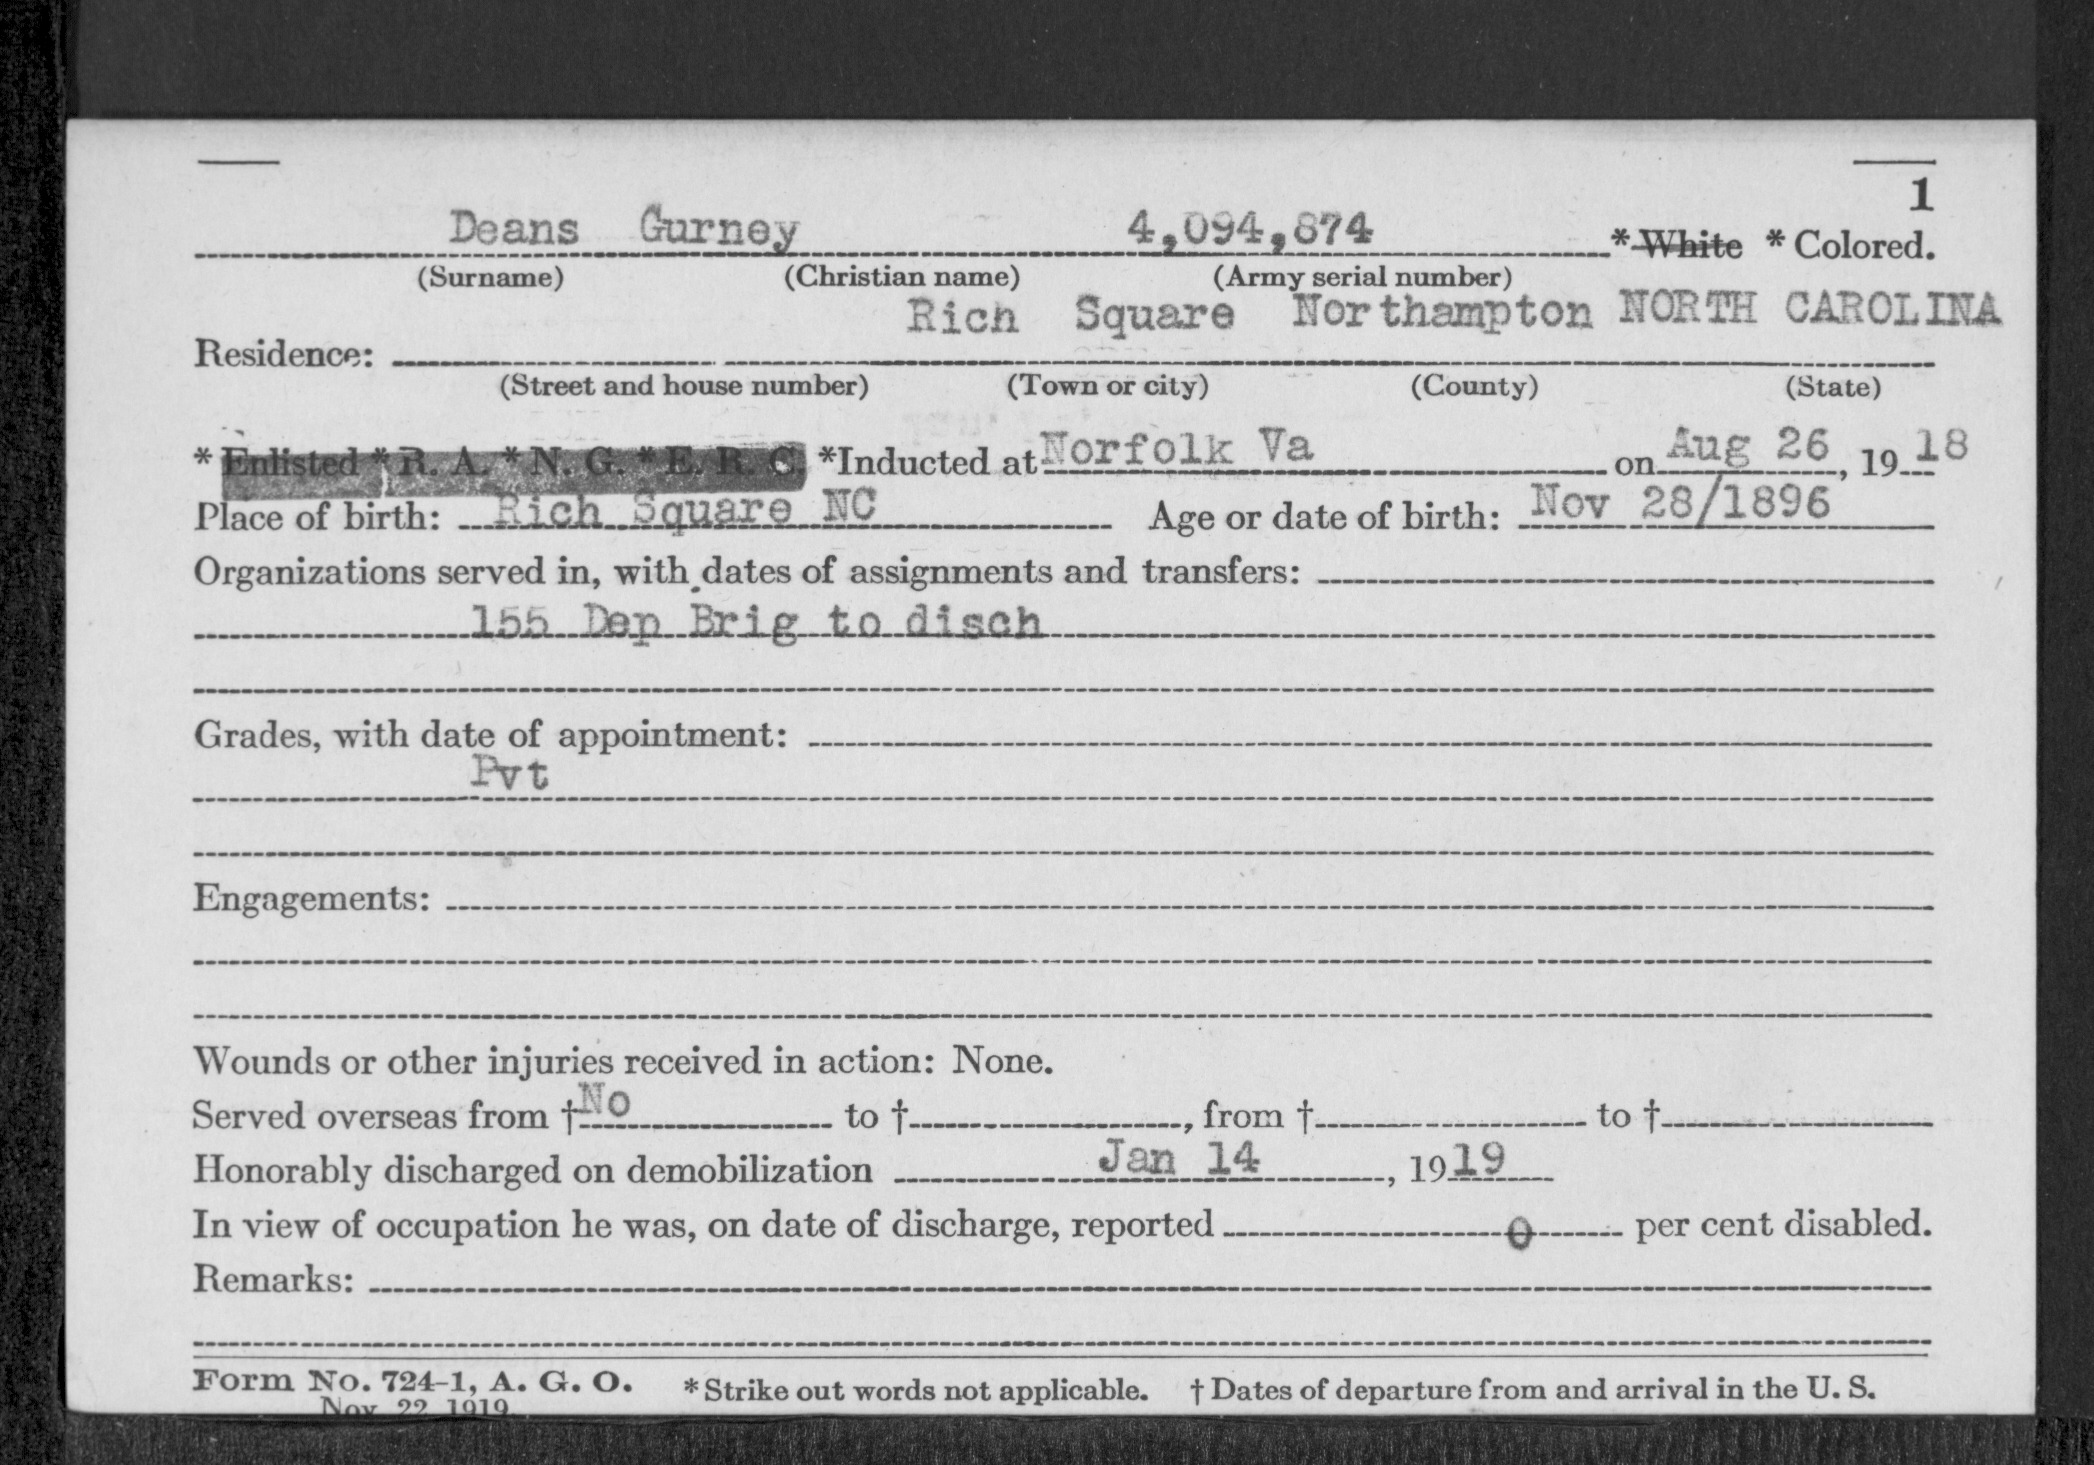 1
Deans Gurney 4,094,874 *White *Colored.
(Surname) (Christian name) (Army serial number)
Rich Square Northampton NORTH CAROLINA
Residence:
(Street and house number) (Town or city) (County) (State)
*Enlisted *R. A. *N. G. *E. R. C. *Inducted at Norfolk Va on Aug 26, 1918
Place of birth: Rich Square NC Age or date of birth: Nov 28/1896
Organizations served in, with dates of assignments and transfers:
155 Dep Brig to disch
Grades, with date of appointment:
Pvt
Engagements:
Wounds or other injuries received in action: None.
Served overseas from † No to †, from † to †
Honorably discharged on demobilization Jan 14, 1919
In view of occupation he was, on date of discharge, reported 0 per cent disabled.
Remarks:
Form No. 724-1, A. G. O. *Strike out words not applicable. † Dates of departure from and arrival in the U. S.
Nov. 22, 1919.